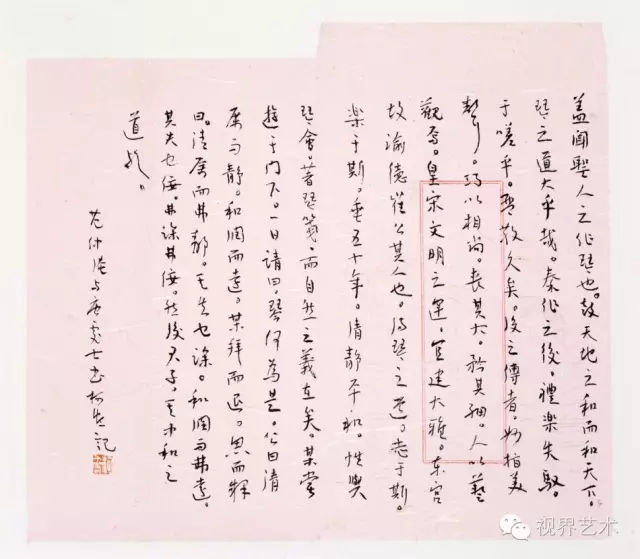 盖闻聖人之作琴也。鼓天地之和而和天下。
琴之道大乎哉。秦作之後。禮樂失馭。
于嗟乎。琴散久矣。後之傳者。妙指美
聲。巧以相尚。喪其大。矜其細。人以藝
觀焉。皇宋文明之運。宜建大雅。東宫
故諭德崔公其人也。得琴之道。志于斯。
樂于斯。垂五十年。清静平和。性與
琴會。著琴箋。而自然之義在矣。某嘗
遊于門下。一日請曰。琴何為是。公曰清
厲而静。和潤而遠。某拜而退。思而釋
曰。清厲而弗静。其失也躁。和潤而弗遠。
其失也佞。弗躁弗佞。然後君子。其中和之
道歟。
范仲淹与唐處士書 記
视界艺术